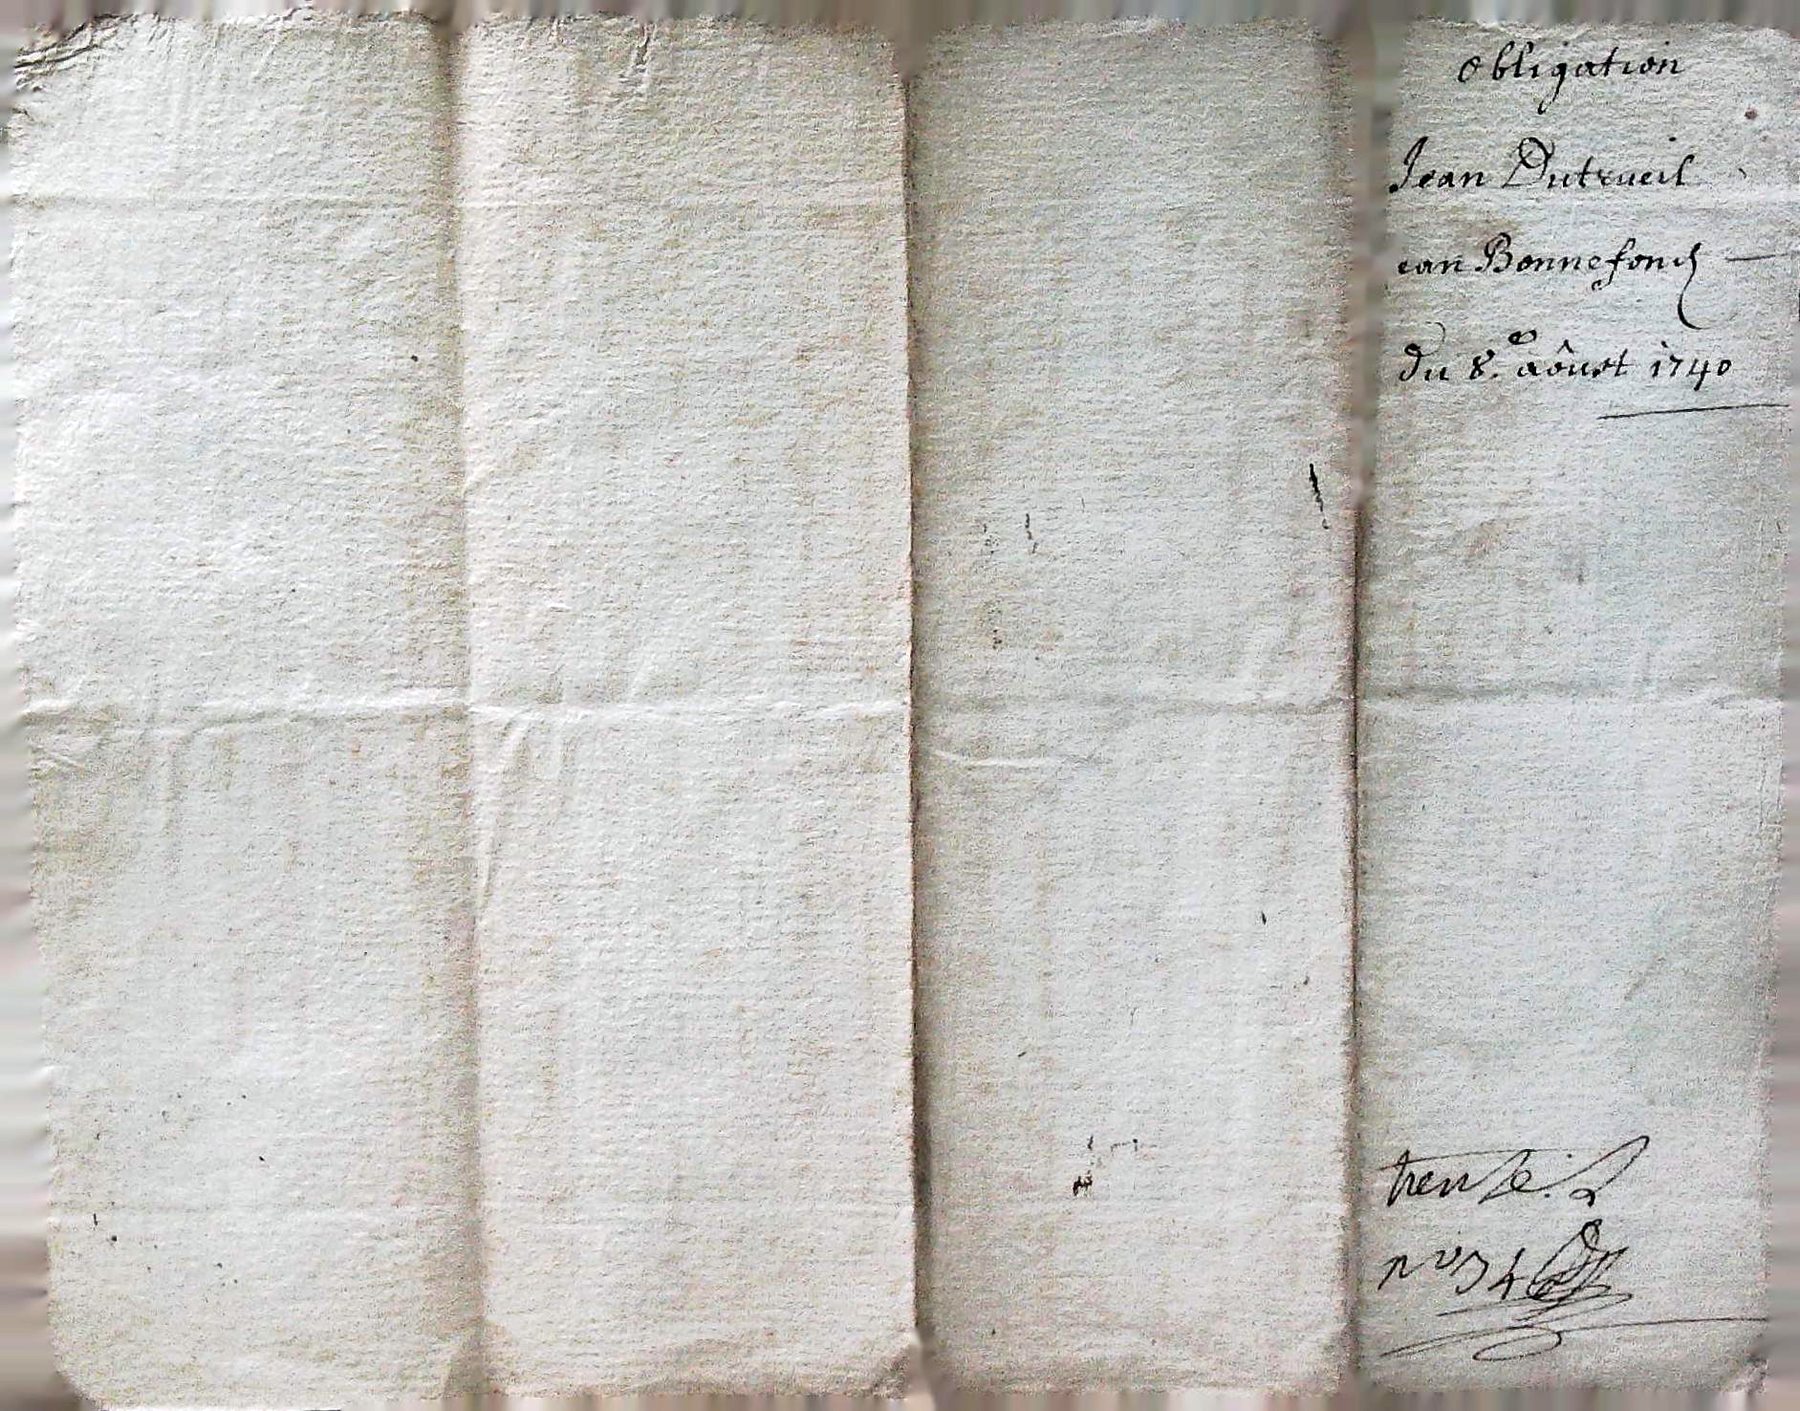 obligation
Jean Dutrueil
ean Bonnefond
du 8.e aôust 1740
trente
nº 34